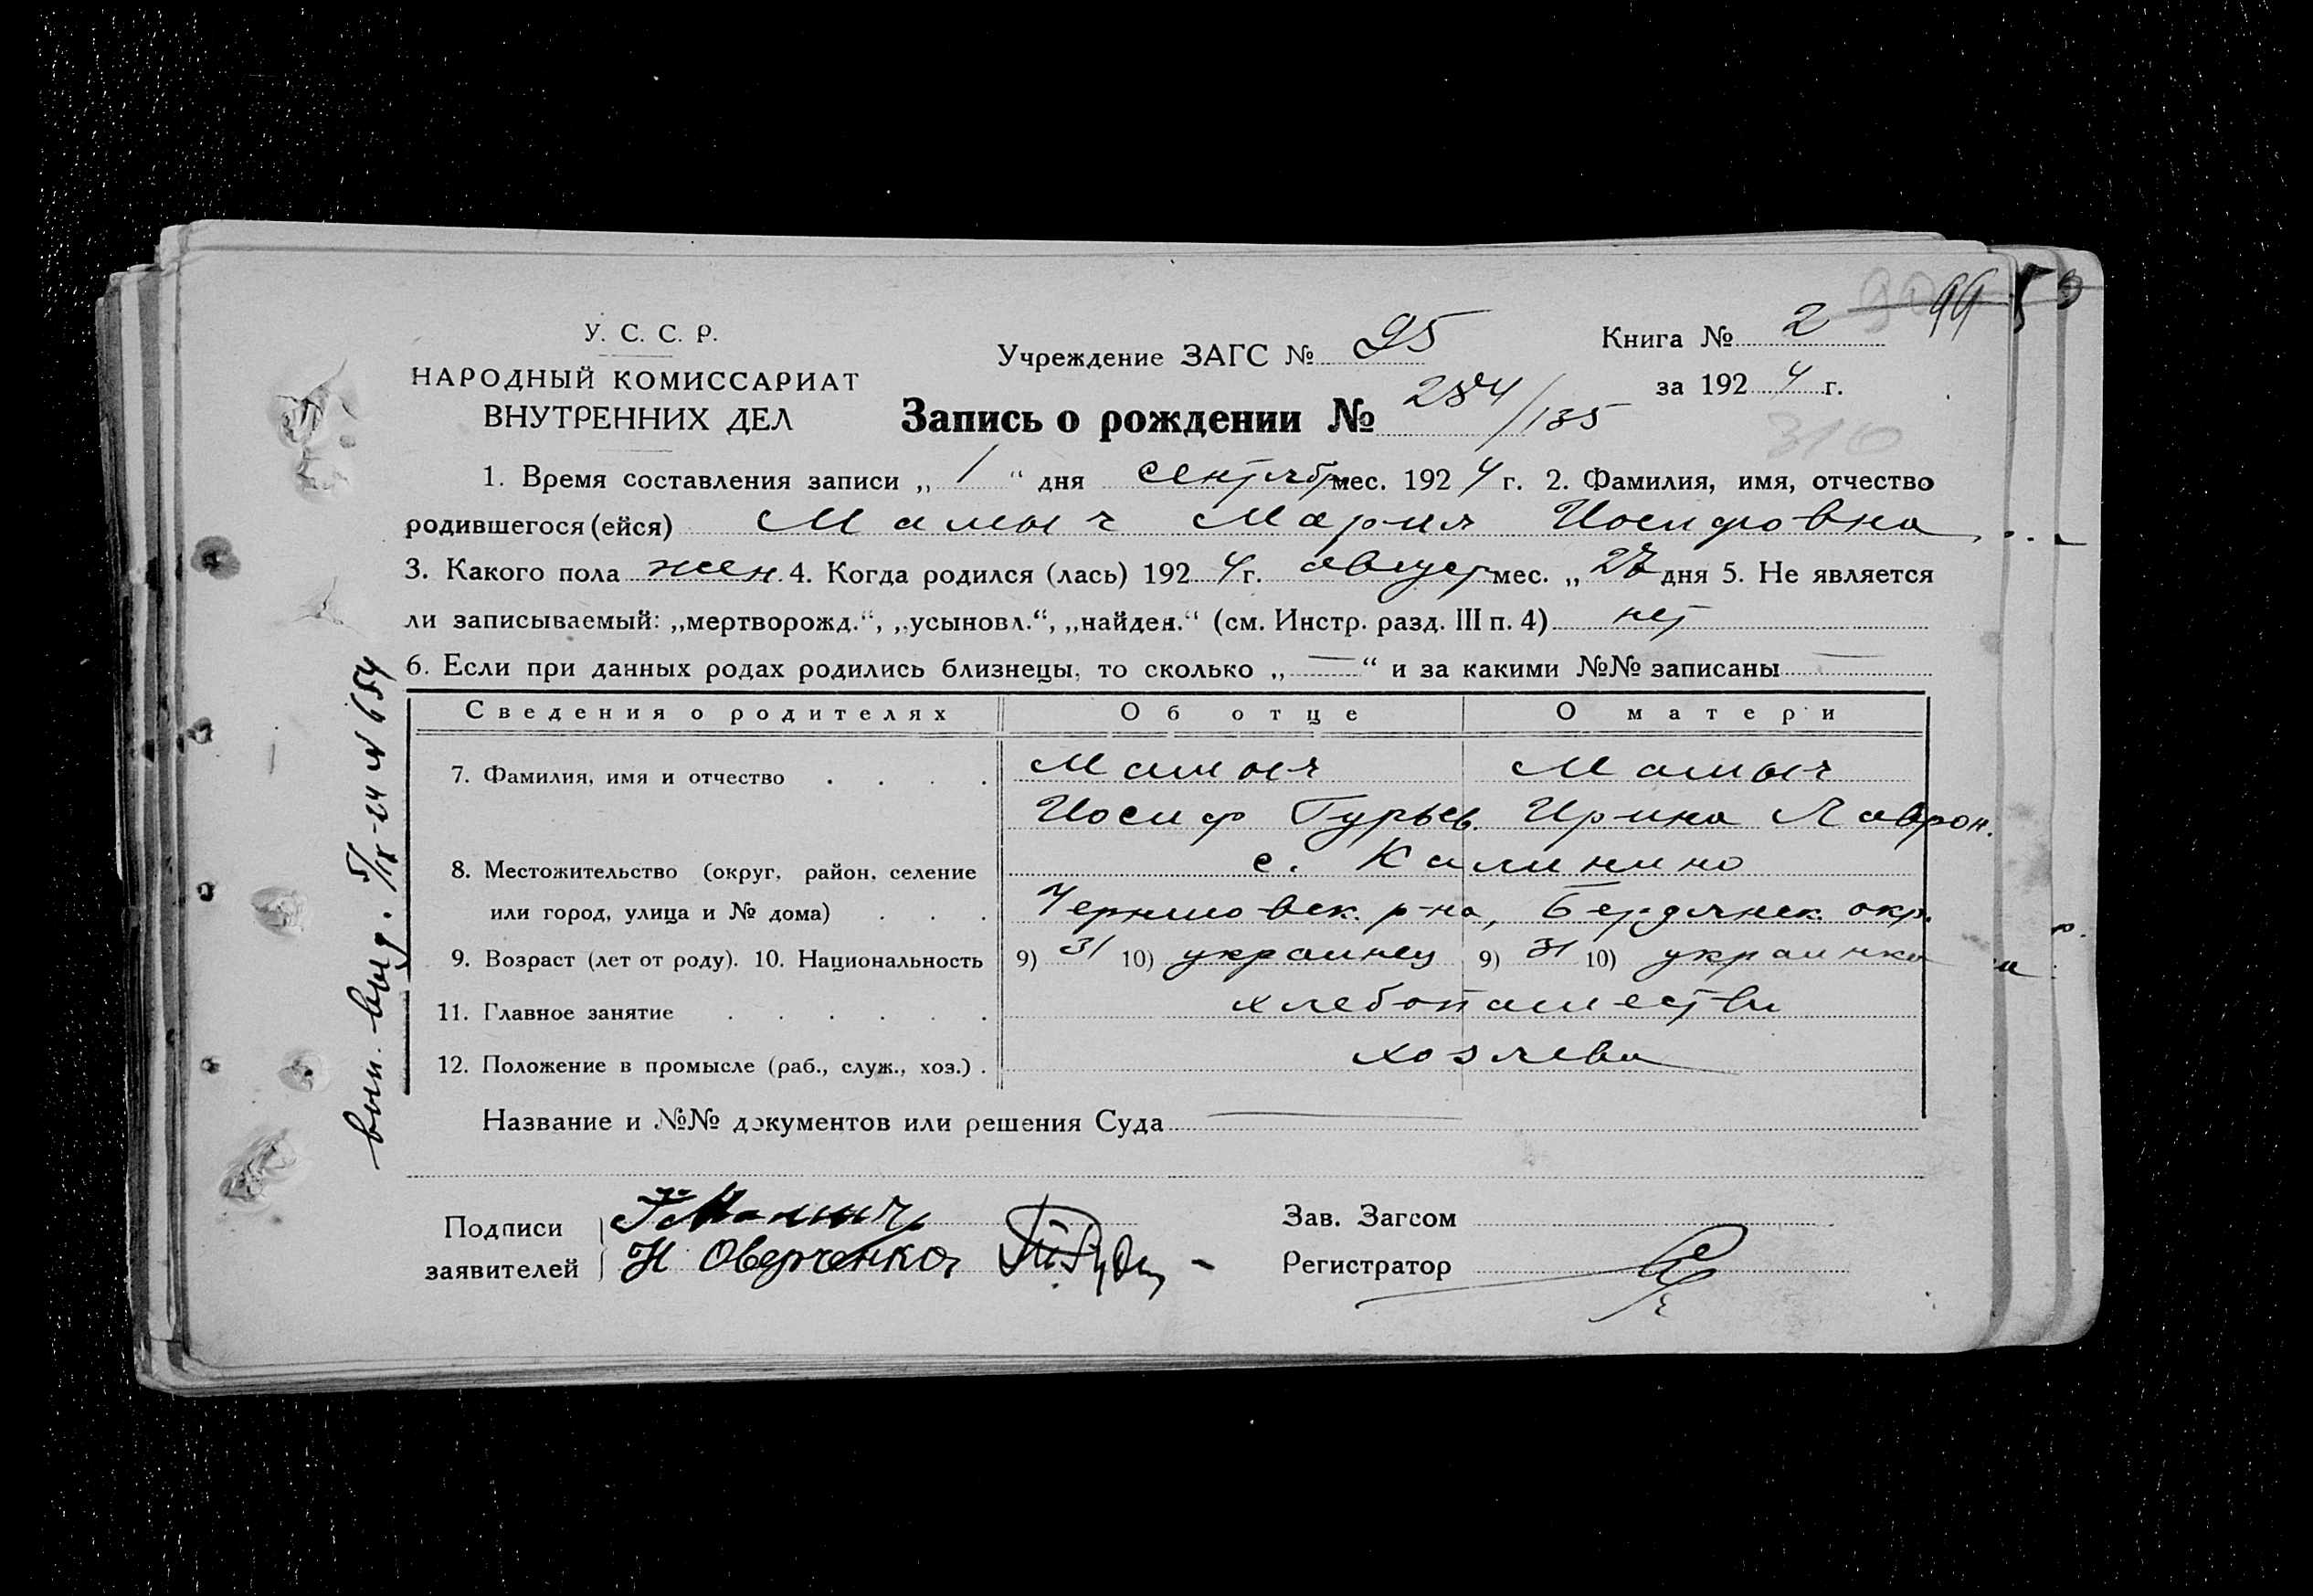 99
У. С. С. Р.
НАРОДНЫЙ КОМИССАРИАТ
ВНУТРЕННИХ ДЕЛ
Учреждение ЗАГС № 25
Книга № 2
за 1924 г.
Запись о рождении № 284/135
310
1. Время составления записи „ 1 “ дня сентябр мес. 1924 г. 2. Фамилия, имя, отчество
родившегося (ейся) Мамыч Мария Иосифовна
3. Какого пола жен. 4. Когда родился (лась) 1924 г. август мес. „ 27 дня 5. Не является
ли записываемый: „мертворожд.“, „усыновл.“, „найден.“ (см. Инстр. разд. III п. 4) нет
6. Если при данных родах родились близнецы, то сколько „ — “ и за какими №№ записаны —
Сведения о родителях Об отце О матери
7. Фамилия, имя и отчество . . . . Мамыч Мамыч
Иосиф Гурьев. Ирина Лаврон.
8. Местожительство (округ, район, селение с. Калинино
или город, улица и № дома) . . . Черниговск. р-на, Бердянск. окр.
9. Возраст (лет от роду). 10. Национальность 9) 31 10) украинец 9) 31 10) украинка
11. Главное занятие . . . . . . хлебопашество
12. Положение в промысле (раб., служ., хоз.) . хозяева
Название и №№ документов или решения Суда —
Подписи заявителей
Мамыч
Н. Оверченко
Зав. Загсом
Регистратор
вып. выд. 5/IX-24 N 654